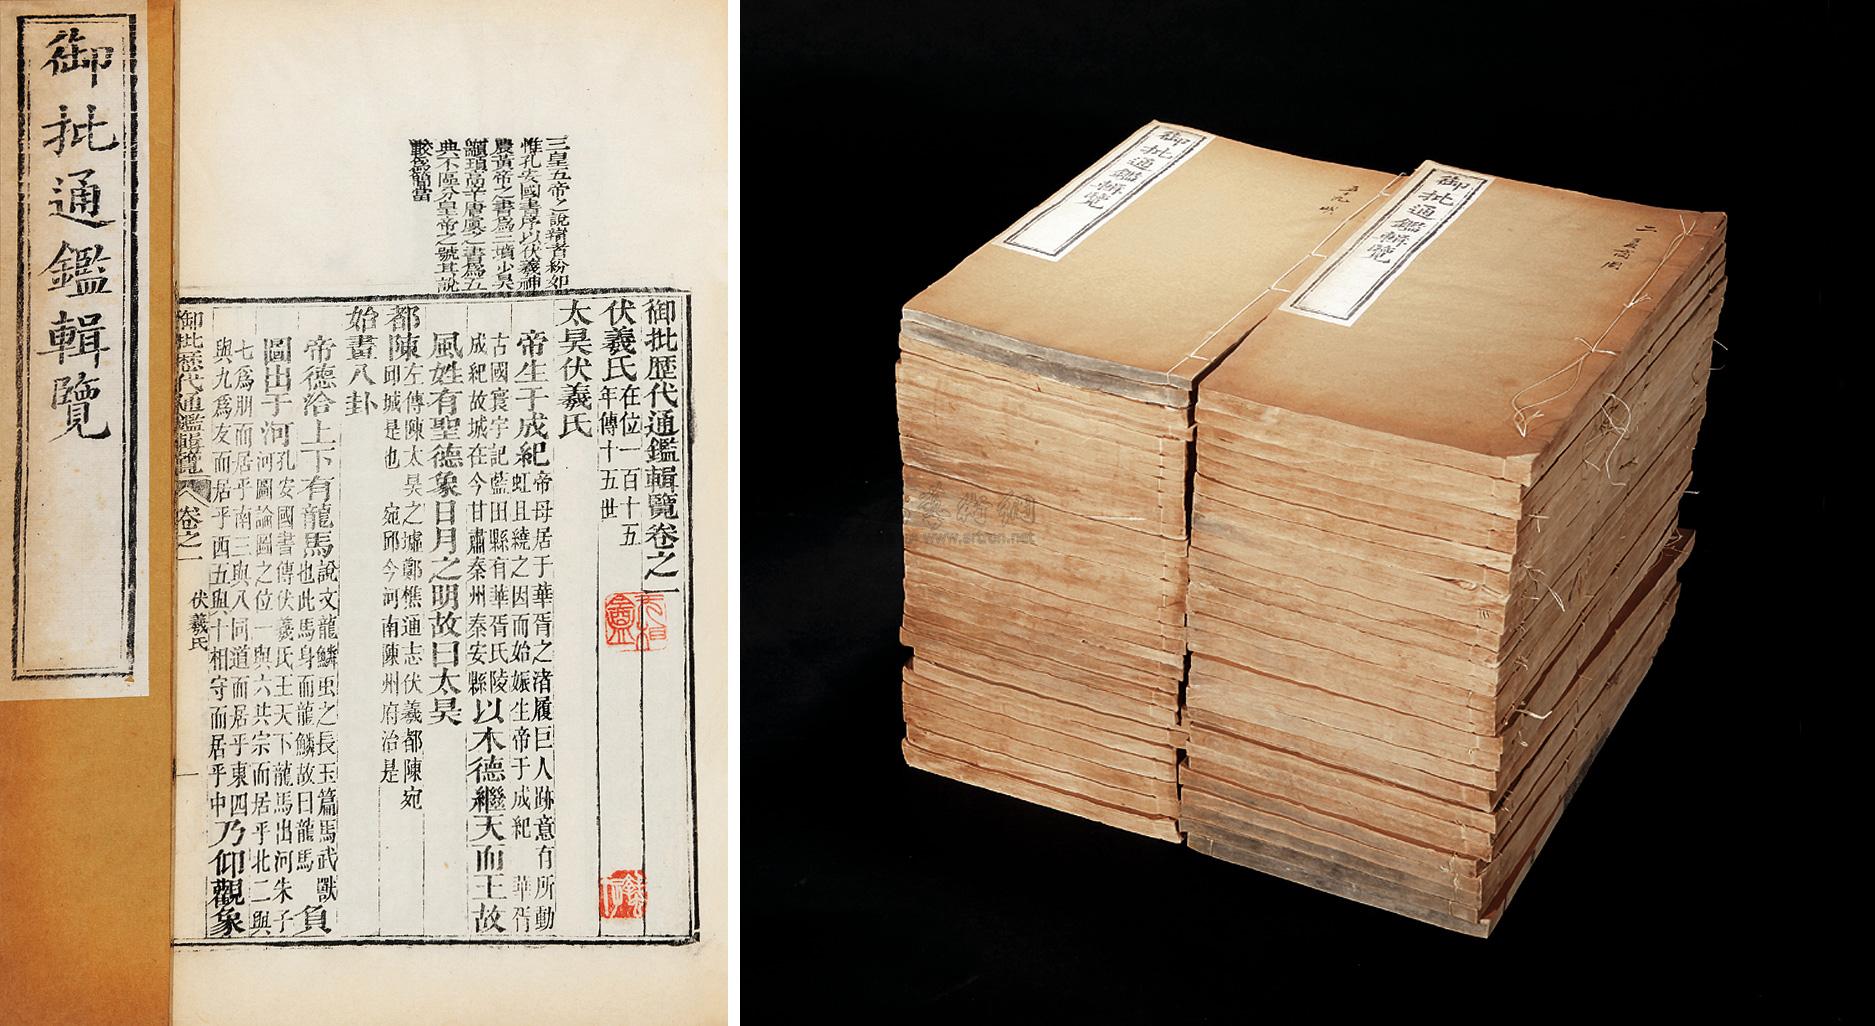 御批通鑑輯覽
三皇五帝之說諸者紛如
惟孔安國書序以伏羲神
農黃帝之書爲三墳少昊
顓頊高辛唐虞之書爲五
典不區分皇帝之號其說
較爲簡當
御批歷代通鑑輯覽卷之一
伏羲氏在位一百十五
年傳十五世
太昊伏羲氏
帝生于成紀帝母居于華胥之渚履巨人跡意有所動
虹且繞之因而始娠生帝于成紀 華胥
古國寰宇記藍田縣有華胥氏陵
成紀故城在今甘肅秦州秦安縣以木德繼天而王故
風姓有聖德象日月之明故曰太昊
都陳左傳陳太昊之墟鄭樵通志伏羲都陳宛
邱城是也 宛邱今河南陳州府治是
始畫八卦
帝德洽上下有龍馬說文龍鱗虫之長玉篇馬武獸
也此馬身而龍鱗故曰龍馬負
圖出于河孔安國書傳伏羲氏王天下龍馬出河朱子
河圖論圖之位一與六共宗而居乎北二與
七爲朋而居乎南三與八同道而居乎東四
與九爲友而居乎西五與十相守而居乎中乃仰觀象
御批歷代通鑑輯覽 卷之一 伏羲氏 一
御批通鑑輯覽
御批通鑑輯覽
藝術網
www.artron.net